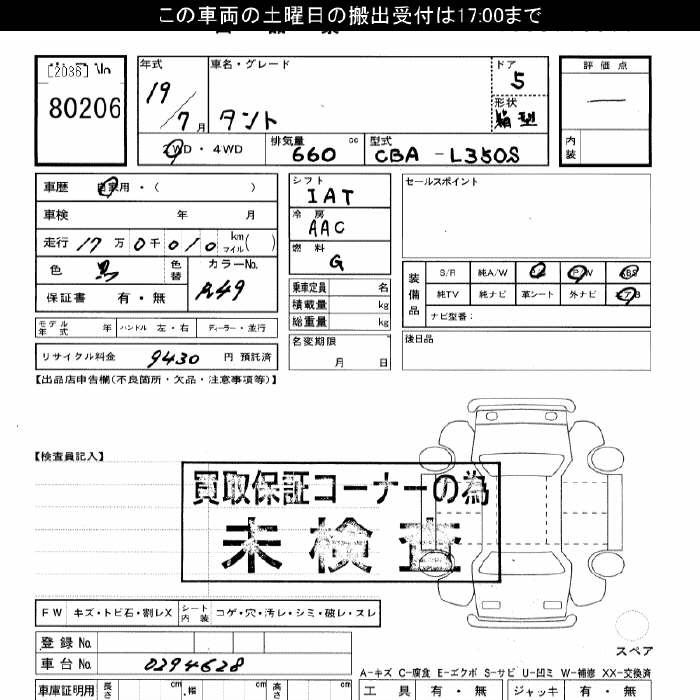 この車両の土曜日の搬出受付は17:00まで
[2036] No
80206
年式
19/7月
車名・グレード
タント
ドア
5
形状
箱型
評価点
内装
2WD・4WD
排気量
660 cc
型式
CBA-L350S
車歴 自家用・( )
車検 年 月
走行 17万0千010 km マイル( )
色 黒 色替
カラーNo.
A49
保証書 有・無
モデル年式 年 ハンドル 左・右 ディーラー・並行
リサイクル料金 9430 円 預託済
シフト
IAT
冷房
AAC
燃料
G
乗車定員 名
積載量 kg
総重量 kg
名変期限
月 日
セールスポイント
装備品
S/R 純A/W P/S P/W ABS
純TV 純ナビ 革シート 外ナビ エアB
ナビ型番:
後日品
【出品店申告欄(不良箇所・欠品・注意事項等)】
【検査員記入】
買取保証コーナーの為
未検査
FW キズ・トビ石・割レX シート内装 コゲ・穴・汚レ・シミ・破レ・スレ
登録No.
車台No. 0294628
スペア
A-キズ C-腐食 E-エクボ S-サビ U-凹ミ W-補修 XX-交換済
車庫証明用 長さ cm 幅 cm 高さ cm
工具 有・無 ジャッキ 有・無